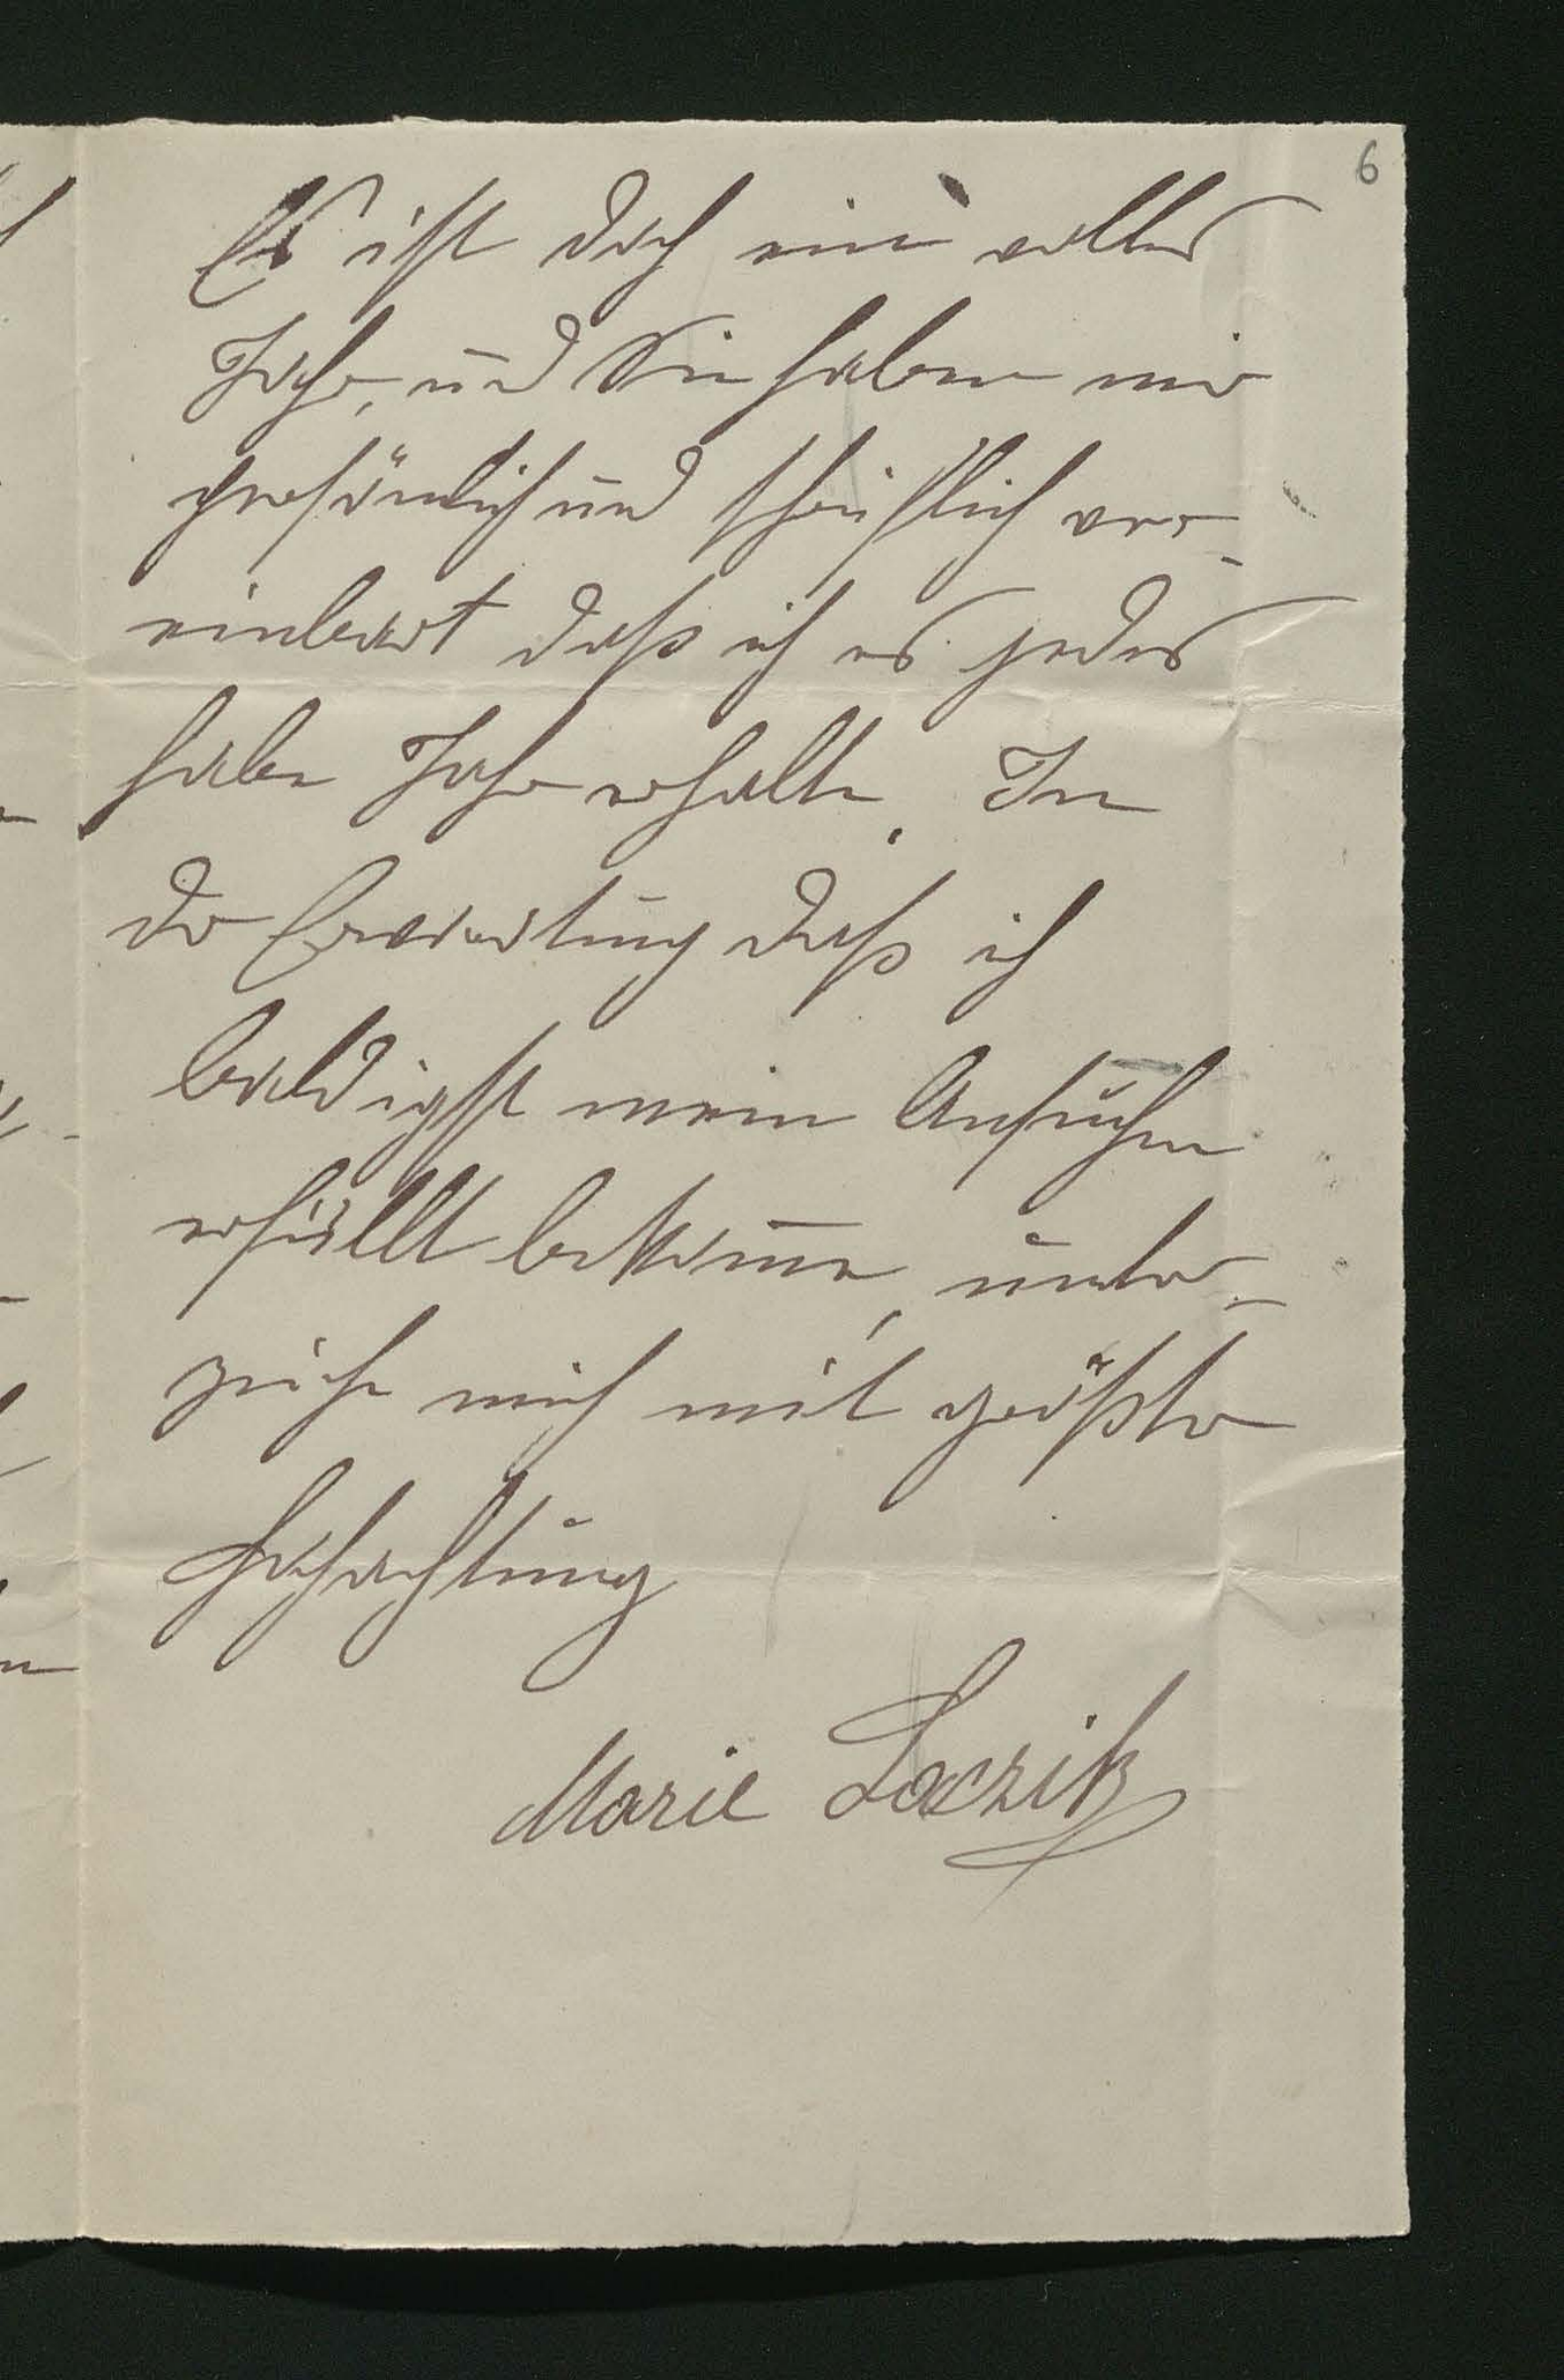 6
Es ist doch ein volles
Jahr, und Sie haben mir
persönlich und schriftlich ver-
einbart daß ich es jedes
halbe Jahr erhalte. In
der Erwartung daß ich
baldigst mein Ansuchen
erfüllt bekomme, unter-
zeiche mich mit größter
Hochachtung
Marie Laczik